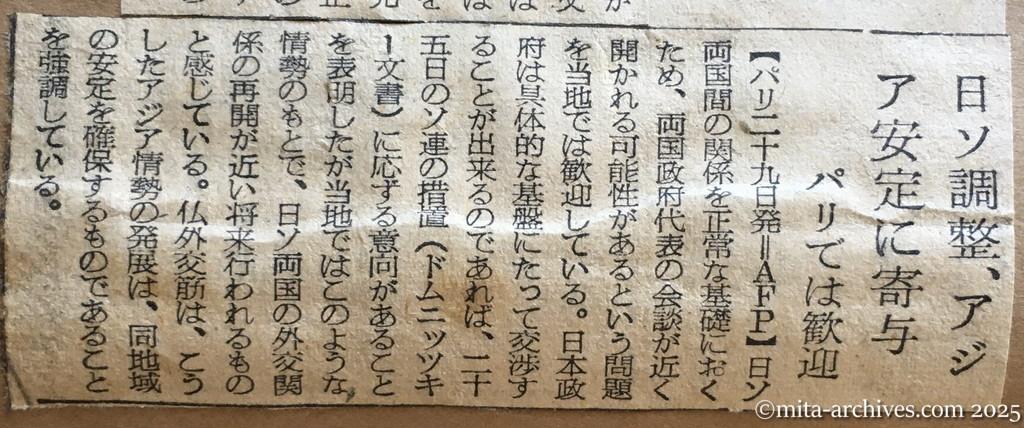 日ソ調整、アジ
ア安定に寄与
パリでは歓迎
【パリ二十九日発＝ＡＦＰ】日ソ
両国間の関係を正常な基礎におく
ため、両国政府代表の会談が近く
開かれる可能性があるという問題
を当地では歓迎している。日本政
府は具体的な基盤にたって交渉す
ることが出来るのであれば、二十
五日のソ連の措置（ドムニッツキ
ー文書）に応ずる意向があること
を表明したが当地ではこのような
情勢のもとで、日ソ両国の外交関
係の再開が近い将来行われるもの
と感じている。仏外交筋は、こう
したアジア情勢の発展は、同地域
の安定を確保するものであること
を強調している。
©mita-archives.com 2025